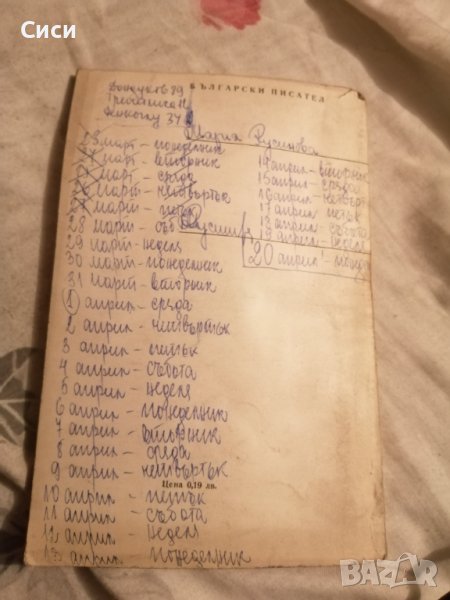 Сиси
Дондуков 79
БЪЛГАРСКИ ПИСАТЕЛ
34
Мария Русинова
23 март - понеделник
24 март - вторник
25 март - сряда
26 март - четвъртък
27 март - петък
28 март - съб
29 март - неделя
30 март - понеделник
31 март - вторник
1 април - сряда
2 април - четвъртък
3 април - петък
4 април - събота
5 април - неделя
6 април - понеделник
7 април - вторник
8 април - сряда
9 април - четвъртък
Цена 0,19 лв.
10 април - петък
11 април - събота
12 април - неделя
13 април - понеделник
14 април - вторник
15 април - сряда
16 април - четвърт
17 април - петък
18 април - събота
19 април - неделя
20 април - понед
BAZAR